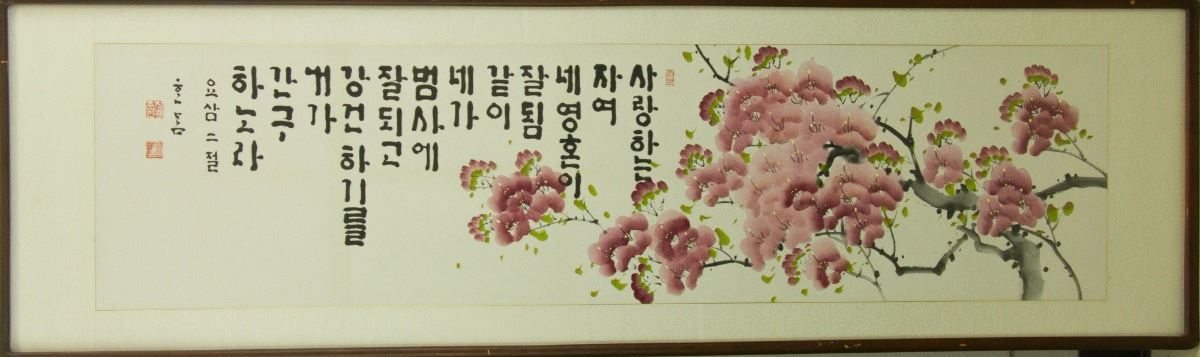 사랑하는
자여
네영혼이
잘됨
같이
네가
범사에
잘되고
강건하기를
내가
간구
하노라
요삼 二절